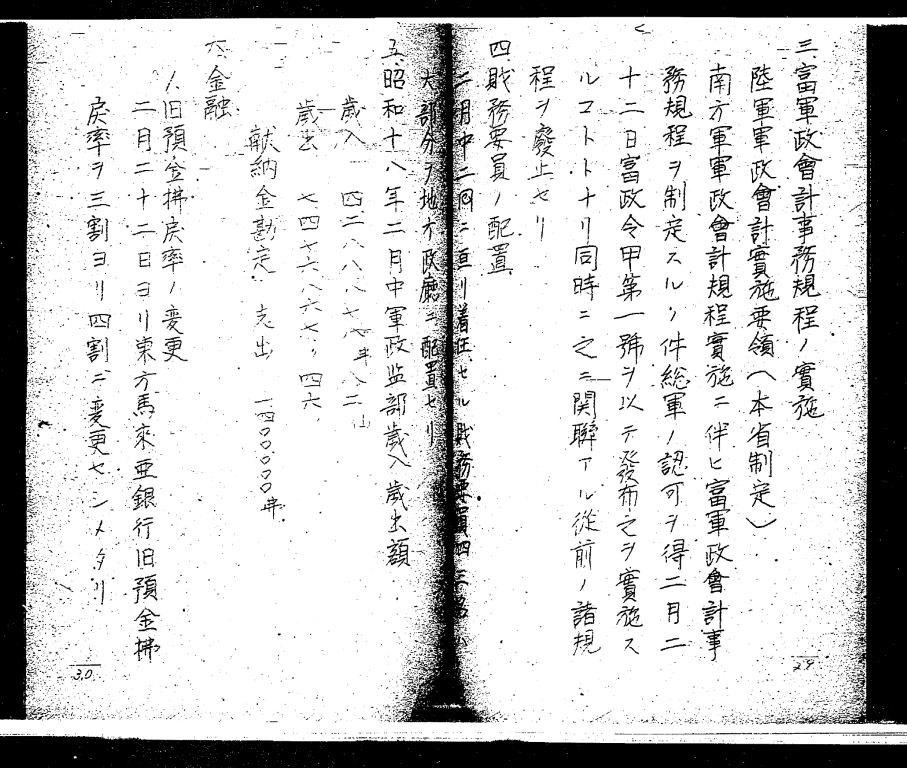 三、富軍政會計事務規程ノ實施
陸軍軍政會計實施要領(本省制定)
南方軍軍政會計規程實施ニ伴ヒ富軍政會計事
務規程ヲ制定スルノ件総軍ノ認可ヲ得二月二
十二日富政令甲第一號ヲ以テ發布之ヲ實施ス
ルコトトナリ同時ニ之ニ関聯アル從前ノ諸規
程ヲ廢止セリ
29
四、財務要員ノ配置
二月中二回ニ亘リ着任セル財務要員四三名ハ
大部分ヲ地方政廳ニ配置セリ
五、昭和十八年二月中軍政監部歳入歳出額
歳入 四二八八八七六弗八二仙
歳出 七四七六八六七、四六、
献納金勘定、支出 一四〇〇〇〇〇弗、
六、金融
1、旧預金拂戻率ノ変更
二月二十二日ヨリ東方馬來亜銀行旧預金拂
戻率ヲ三割ヨリ四割ニ変更セシメタリ
30